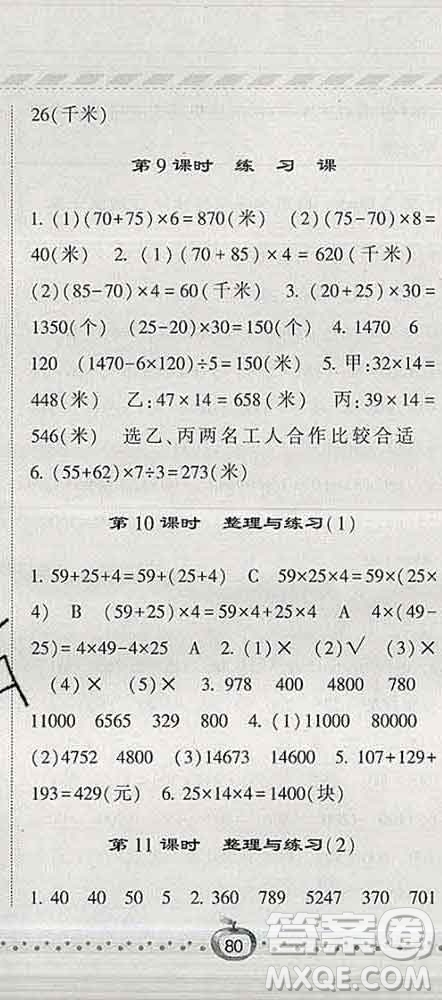 26(千米)
第9课时 练 习 课
1. (1)(70+75)×6=870(米) (2)(75-70)×8=
40(米) 2. (1)(70+85)×4=620(千米)
(2)(85-70)×4=60(千米) 3. (20+25)×30=
1350(个) (25-20)×30=150(个) 4. 1470 6
120 (1470-6×120)÷5=150(米) 5. 甲:32×14=
448(米) 乙:47×14=658(米) 丙:39×14=
546(米) 选乙、丙两名工人合作比较合适
6. (55+62)×7÷3=273(米)
第10课时 整理与练习(1)
1. 59+25+4=59+(25+4) C 59×25×4=59×(25×
4) B (59+25)×4=59×4+25×4 A 4×(49-
25)=4×49-4×25 A 2. (1)× (2)√ (3)×
(4)× (5)× 3. 978 400 4800 780
11000 6565 329 800 4. (1)11000 80000
(2)4752 4800 (3)14673 14600 5. 107+129+
193=429(元) 6. 25×14×4=1400(块)
第11课时 整理与练习(2)
1. 40 40 50 5 2. 360 789 5247 370 701
80
答案圈
MXQE.COM